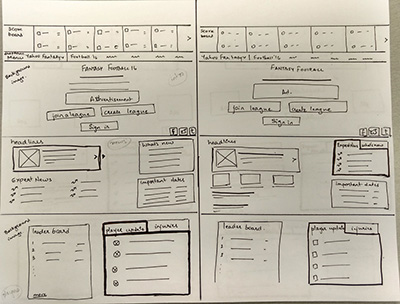 Score board
Menu Yahoo Fantasy Football '16
Background image
FANTASY FOOTBALL '16
Advertisement
join a league
create league
Sign in
headlines
What's new
Expert News
Important dates
Background image
leader board
1
2
3
more
player update
injuries
Score board
Yahoo Fantasy Football '16
FANTASY FOOTBALL
Ad.
join league
create league
Sign in
headlines
what's new
Important dates
leader board
player update
injuries